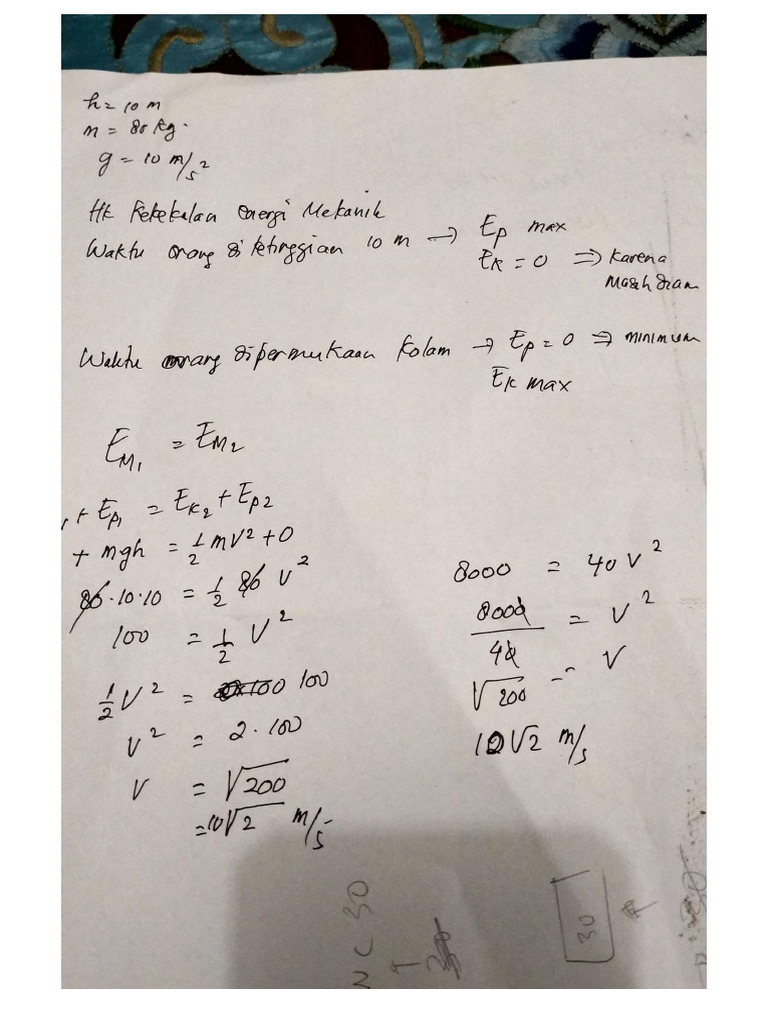 h = 10 m
m = 80 kg.
g = 10 m/s²
Hk Kekekalan energi Mekanik
Waktu orang di ketinggian 10 m → Ep max
Ek = 0 ⇒ karena
masih diam
Waktu orang dipermukaan kolam → Ep = 0 ⇒ minimum
Ek max
EM₁ = EM₂
+ Ep₁ = Ek₂ + Ep2
+ mgh = ½ mv² + 0
80·10·10 = ½ 80 v²
100 = ½ v²
½ v² = 100
v² = 2·100
v = √200
= 10√2 m/s
8000 = 40 v²
8000/40 = v²
√200 = v
10√2 m/s
NC 30
30